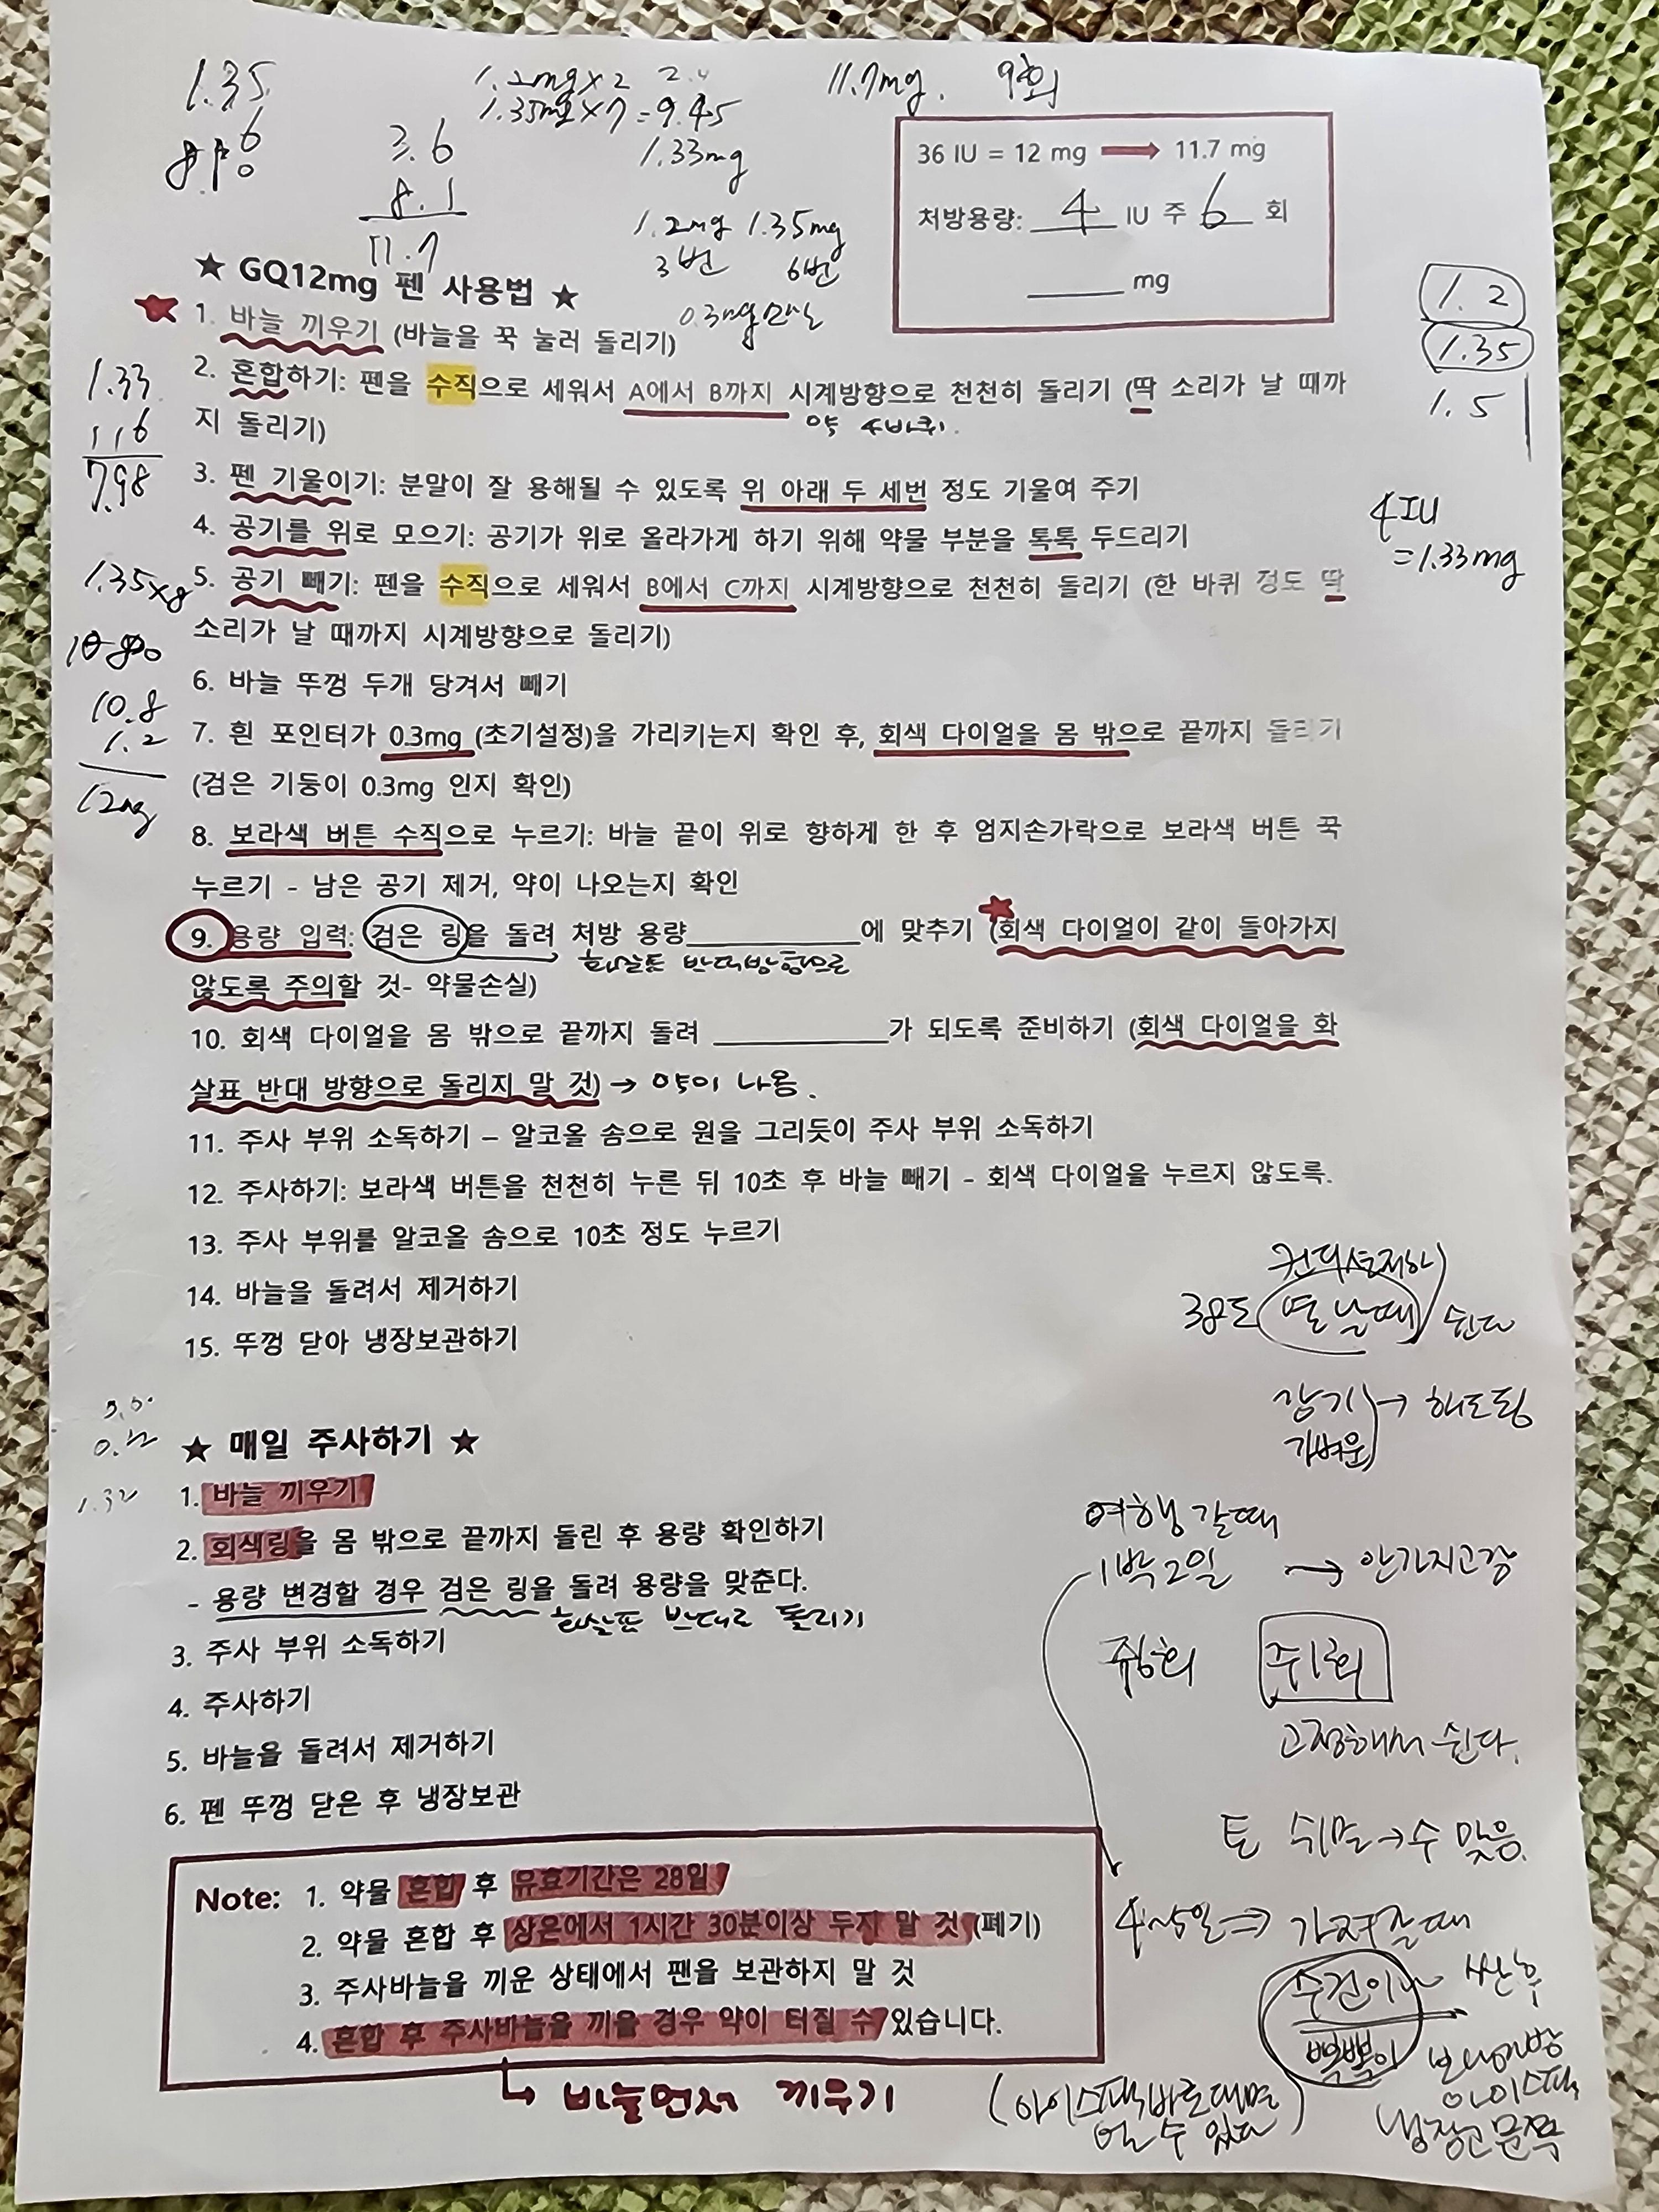 1.35
6
3.6
8.1
11.7
1.2mg×2 2.4
1.35mg×7=9.45
1.33mg
1.2mg 1.35mg
3번 6번
11.7mg. 9회
36 IU = 12 mg → 11.7 mg
처방용량: 4 IU 주 6 회
______ mg
1.2
1.35
1.5
★ GQ12mg 펜 사용법 ★
1. 바늘 끼우기 (바늘을 꾹 눌러 돌리기)
2. 혼합하기: 펜을 수직으로 세워서 A에서 B까지 시계방향으로 천천히 돌리기 (딱 소리가 날 때까
약 4바퀴.
지 돌리기)
1.33
6
7.98
3. 펜 기울이기: 분말이 잘 용해될 수 있도록 위 아래 두 세번 정도 기울여 주기
4. 공기를 위로 모으기: 공기가 위로 올라가게 하기 위해 약물 부분을 톡톡 두드리기
4IU
=1.33mg
5. 공기 빼기: 펜을 수직으로 세워서 B에서 C까지 시계방향으로 천천히 돌리기 (한 바퀴 정도 딱
소리가 날 때까지 시계방향으로 돌리기)
1.35×8
10.8
1.2
12mg
6. 바늘 뚜껑 두개 당겨서 빼기
7. 흰 포인터가 0.3mg (초기설정)을 가리키는지 확인 후, 회색 다이얼을 몸 밖으로 끝까지 돌리기
(검은 기둥이 0.3mg 인지 확인)
8. 보라색 버튼 수직으로 누르기: 바늘 끝이 위로 향하게 한 후 엄지손가락으로 보라색 버튼 꾹
누르기 - 남은 공기 제거, 약이 나오는지 확인
9. 용량 입력: 검은 링을 돌려 처방 용량____________에 맞추기 (회색 다이얼이 같이 돌아가지
화살표 반대방향으로
않도록 주의할 것- 약물손실)
10. 회색 다이얼을 몸 밖으로 끝까지 돌려 ____________가 되도록 준비하기 (회색 다이얼을 화
살표 반대 방향으로 돌리지 말 것) → 약이 나옴.
11. 주사 부위 소독하기 – 알코올 솜으로 원을 그리듯이 주사 부위 소독하기
12. 주사하기: 보라색 버튼을 천천히 누른 뒤 10초 후 바늘 빼기 - 회색 다이얼을 누르지 않도록.
13. 주사 부위를 알코올 솜으로 10초 정도 누르기
14. 바늘을 돌려서 제거하기
15. 뚜껑 닫아 냉장보관하기
38도 열 날때 쉰다
감기
가벼운 → 해도됨
★ 매일 주사하기 ★
1.32
1. 바늘 끼우기
2. 회색링을 몸 밖으로 끝까지 돌린 후 용량 확인하기
- 용량 변경할 경우 검은 링을 돌려 용량을 맞춘다.
화살표 반대로 돌리기
3. 주사 부위 소독하기
4. 주사하기
5. 바늘을 돌려서 제거하기
6. 펜 뚜껑 닫은 후 냉장보관
여행 갈때
1박2일 → 안가지고감
주6회 주1회
고정해서 쉰다.
토 쉬면 → 수 맞음.
4~5일 ⇒ 가져갈때
수건이나 싼 후
뽁뽁이 보냉가방
아이스팩
냉장고 문쪽
(아이스팩 바로대면
얼 수 있다)
Note: 1. 약물 혼합 후 유효기간은 28일
2. 약물 혼합 후 상온에서 1시간 30분이상 두지 말 것 (폐기)
3. 주사바늘을 끼운 상태에서 팬을 보관하지 말 것
4. 혼합 후 주사바늘을 끼울 경우 약이 터질 수 있습니다.
↳ 바늘먼저 끼우기